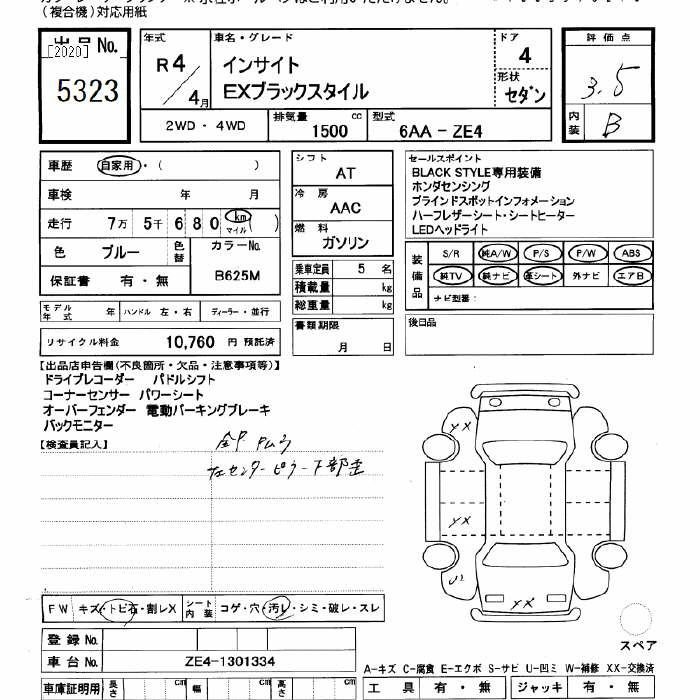 (複合機)対応用紙
出品No.
[2020]
5323
年式
R4/4月
車名・グレード
インサイト
EXブラックスタイル
ドア
4
形状
セダン
評価点
3.5
内装
B
2WD・4WD
排気量
1500 cc
型式
6AA-ZE4
車歴 自家用・( )
車検 年 月
走行 7万 5千 6 8 0 km マイル ( )
色 ブルー
色替
カラーNo.
B625M
保証書 有・無
シフト
AT
冷房
AAC
燃料
ガソリン
乗車定員 5 名
積載量 kg
総重量 kg
セールスポイント
BLACK STYLE専用装備
ホンダセンシング
ブラインドスポットインフォメーション
ハーフレザーシート・シートヒーター
LEDヘッドライト
装備品
S/R 純A/W P/S P/W ABS
純TV 純ナビ 革シート 外ナビ エアB
ナビ型番:
モデル年式 年 ハンドル 左・右 ディーラー・並行
リサイクル料金 10,760 円 預託済
書類期限
月 日
後日品
【出品店申告欄(不良箇所・欠品・注意事項等)】
ドライブレコーダー パドルシフト
コーナーセンサー パワーシート
オーバーフェンダー 電動パーキングブレーキ
バックモニター
【検査員記入】
センターピラー下部歪
XX
YX
YX
FW キズ・トビ石・割レX
シート内装 コゲ・穴・汚レ・シミ・破レ・スレ
登録No.
車台No. ZE4-1301334
車庫証明用 長さ cm 幅 cm 高さ cm
スペア
A-キズ C-腐食 E-エクボ S-サビ U-凹ミ W-補修 XX-交換済
工具 有・無 ジャッキ 有・無